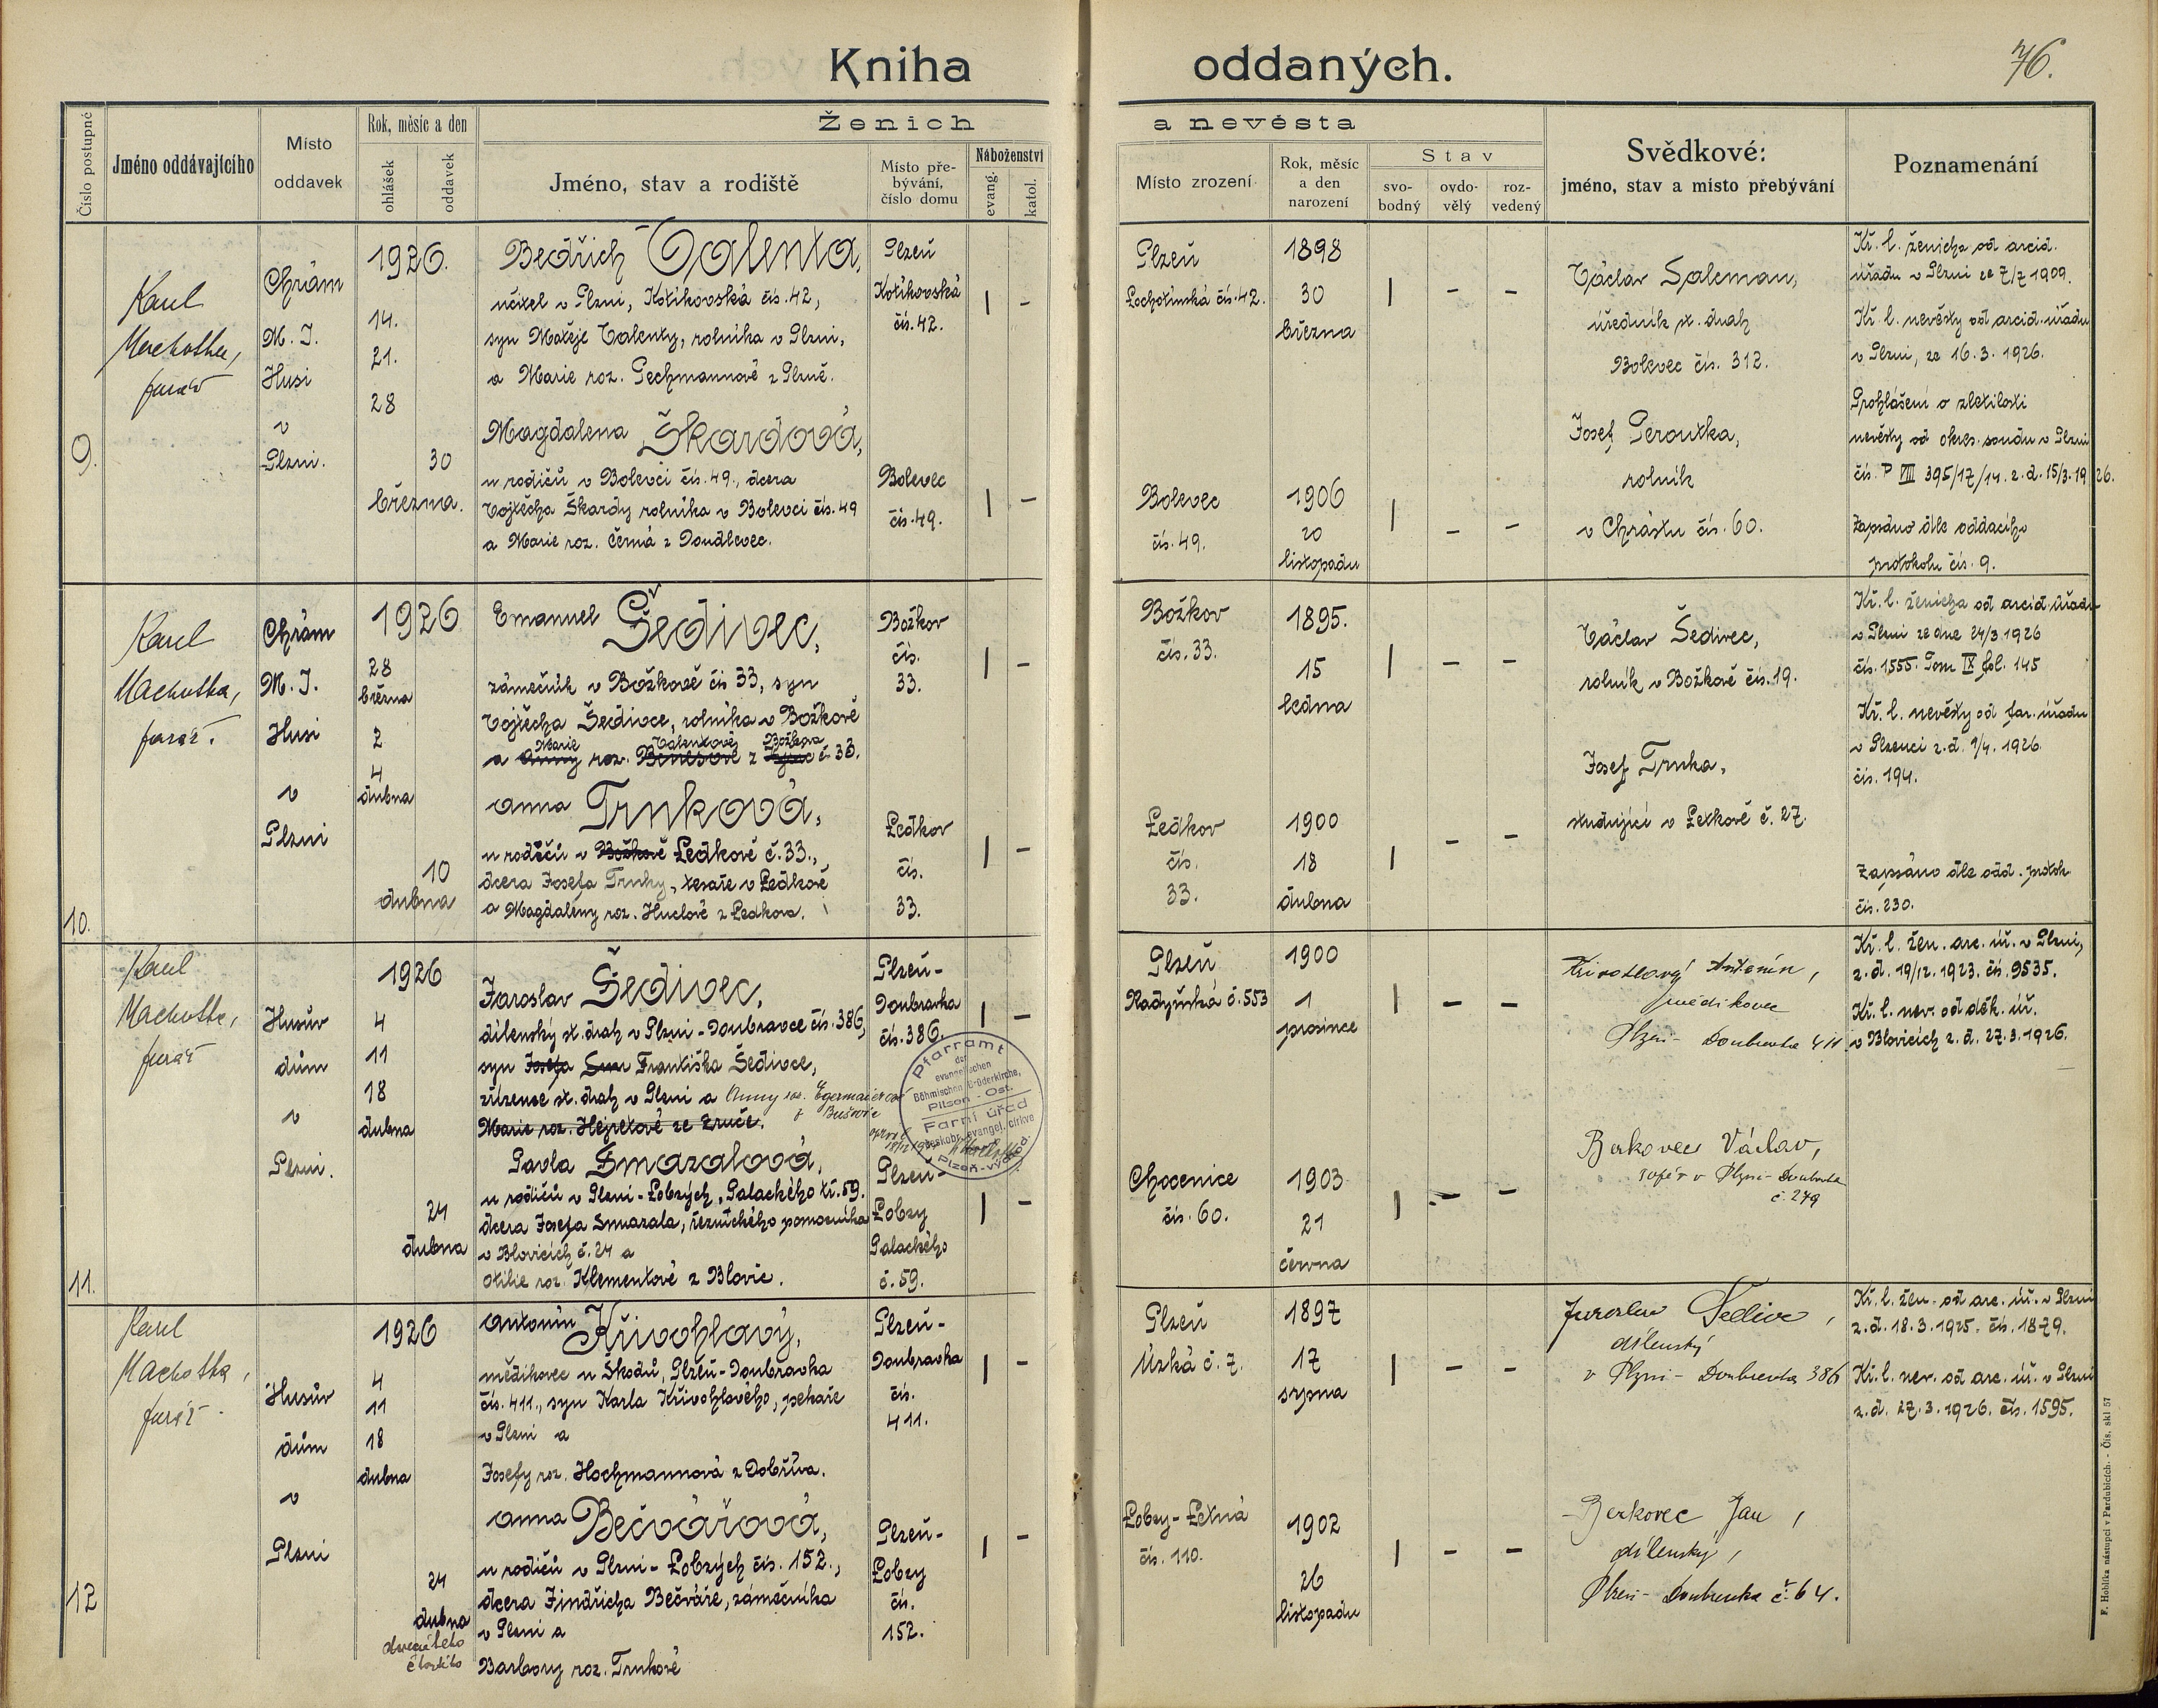 Kniha oddaných.
76.
Číslo postupné
Jméno oddávajícího
Místo oddavek
Rok, měsíc a den
ohlášek
oddavek
Ženich a nevěsta
Jméno, stav a rodiště
Místo pře-
bývání,
číslo domu
Náboženství
evang.
katol.
Místo zrození
Rok, měsíc
a den
narození
Stav
svo-
bodný
ovdo-
vělý
roz-
vedený
Svědkové:
jméno, stav a místo přebývání
Poznamenání
9.
Karel
Machotka,
farář
Chrám
M. J.
Husi
v
Plzni.
1926.
14.
21.
28
30
března.
Bedřich Valenta,
učitel v Plzni, Kotíkovská čís. 42,
syn Matěje Valenty, rolníka v Plzni,
a Marie roz. Pechmannové z Plzně.
Plzeň
Kotíkovská
čís. 42.
| -
Plzeň
Lochotínská čís. 42.
1898
30
března
| - -
Magdalena Škardová,
u rodičů v Bolevci čís. 49., dcera
Vojtěcha Škardy rolníka v Bolevci čís. 49
a Marie roz. Černá z Doudlevec.
Bolevec
čís. 49.
| -
Bolevec
čís. 49.
1906
20
listopadu
| - -
Václav Saleman,
úředník st. drah
Bolevec čís. 312.
Josef Peroutka,
rolník
v Chrástu čís. 60.
Kř. l. ženicha od arcid.
úřadu v Plzni ze 7/7 1909.
Kř. l. nevěsty od arcid. úřadu
v Plzni, ze 16. 3. 1926.
Prohlášení o zletilosti
nevěsty od okres. soudu v Plzni
čís. P VIII 395/17/14. z. d. 15/3. 1926.
Zapsáno dle oddacího
protokolu čís. 9.
10.
Karel
Machotka,
farář.
Chrám
M. J.
Husi
v
Plzni
1926
28
března
2
4
dubna
10
dubna
Emanuel Šedivec,
zámečník v Božkově čís 33, syn
Vojtěcha Šedivce, rolníka v Božkově
Marie Válentové Božkova
a Anny roz. Benešové z č. 33.
Božkov
čís.
33.
| -
Božkov
čís. 33.
1895.
15
ledna
| - -
Anna Trnková,
u rodičů v Božkově Ledkově č. 33.,
dcera Josefa Trnky, tesaře v Ledkově
a Magdaleny roz. Huclové z Ledkova.
Ledkov
čís.
33.
| -
Ledkov
čís.
33.
1900
18
dubna
| - -
Václav Šedivec,
rolník v Božkově čís. 19.
Josef Trnka,
studující v Letkově č. 27.
Kř. l. ženicha od arcid. úřadu
v Plzni ze dne 24/3. 1926
čís. 1555. Tom IX fol. 145
Kř. l. nevěsty od far. úřadu
v Plzenci z. d. 1/4. 1926.
čís. 194.
Zapsáno dle odd. protok.
čís. 230.
11.
Karel
Machotka,
farář
Husův
dům
v
Plzni.
1926
4
11
18
dubna
24
dubna
Jaroslav Šedivec,
dílenský st. drah v Plzni-Doubravce čís. 386,
syn Josefa Františka Šedivce,
zřízence st. drah v Plzni a Anny roz. Egermaierové
z Bušovic
Marie roz. Hejretové ze Zruče.
Plzeň-
Doubravka
čís. 386.
| -
Plzeň
Radyňská č. 553
1900
1
prosince
| - -
Pfarramt
der
evangelischen
Böhmischen Brüderkirche,
Pilsen-Ost.
Farní úřad
českobr. evangel. církve
Plzeň-východ.
Pavla Smazalová,
u rodičů v Plzni-Lobzých, Palackého tř. 59.
dcera Josefa Smazala, řeznického pomocníka
v Blovicích č. 24 a
Otilie roz. Klementové z Blovic.
Plzeň-
Lobzy
Palackého
č. 59.
| -
Chocenice
čís. 60.
1903
21
června
| - -
Křivohlavý Antonín,
mědikovec
Plzeň-Doubravka 411.
Berkovec Václav,
v Plzni-Doubravka
č. 279
Kř. l. žen. arc. úř. v Plzni,
z. d. 19/12. 1923. čís. 9535.
Kř. l. nev. od děk. úř.
v Blovicích z. d. 27. 3. 1926.
12
Karel
Machotka,
farář.
Husův
dům
v
Plzni
1926
4
11
18
dubna
24
dubna
dvacátého
čtvrtého
Antonín Křivohlavý,
mědikovec u Škodů, Plzeň-Doubravka
čís. 411., syn Karla Křivohlavého, pekaře
v Plzni a
Josefy roz. Hochmannová z Dobříva.
Plzeň-
Doubravka
čís.
411.
| -
Plzeň
Úzká č. 7.
1897
17
srpna
| - -
Anna Bečvářová,
u rodičů v Plzni-Lobzých čís. 152.,
dcera Jindřicha Bečváře, zámečníka
v Plzni a
Barbory roz. Trnkové
Plzeň-
Lobzy
čís.
152.
| -
Lobzy-Letná
čís. 110.
1902
26
listopadu
| - -
Jaroslav Šedivec,
dílenský
v Plzni-Doubravka 386
Berkovec Jan,
dílenský,
Plzeň-Doubravka č. 64.
Kř. l. žen. od arc. úř. v Plzni
z. d. 18. 3. 1925. čís. 1879.
Kř. l. nev. od arc. úř. v Plzni
z. d. 27. 3. 1926. čís. 1595.
F. Hoblíka nástupci v Pardubicích. - Čís. skl 57